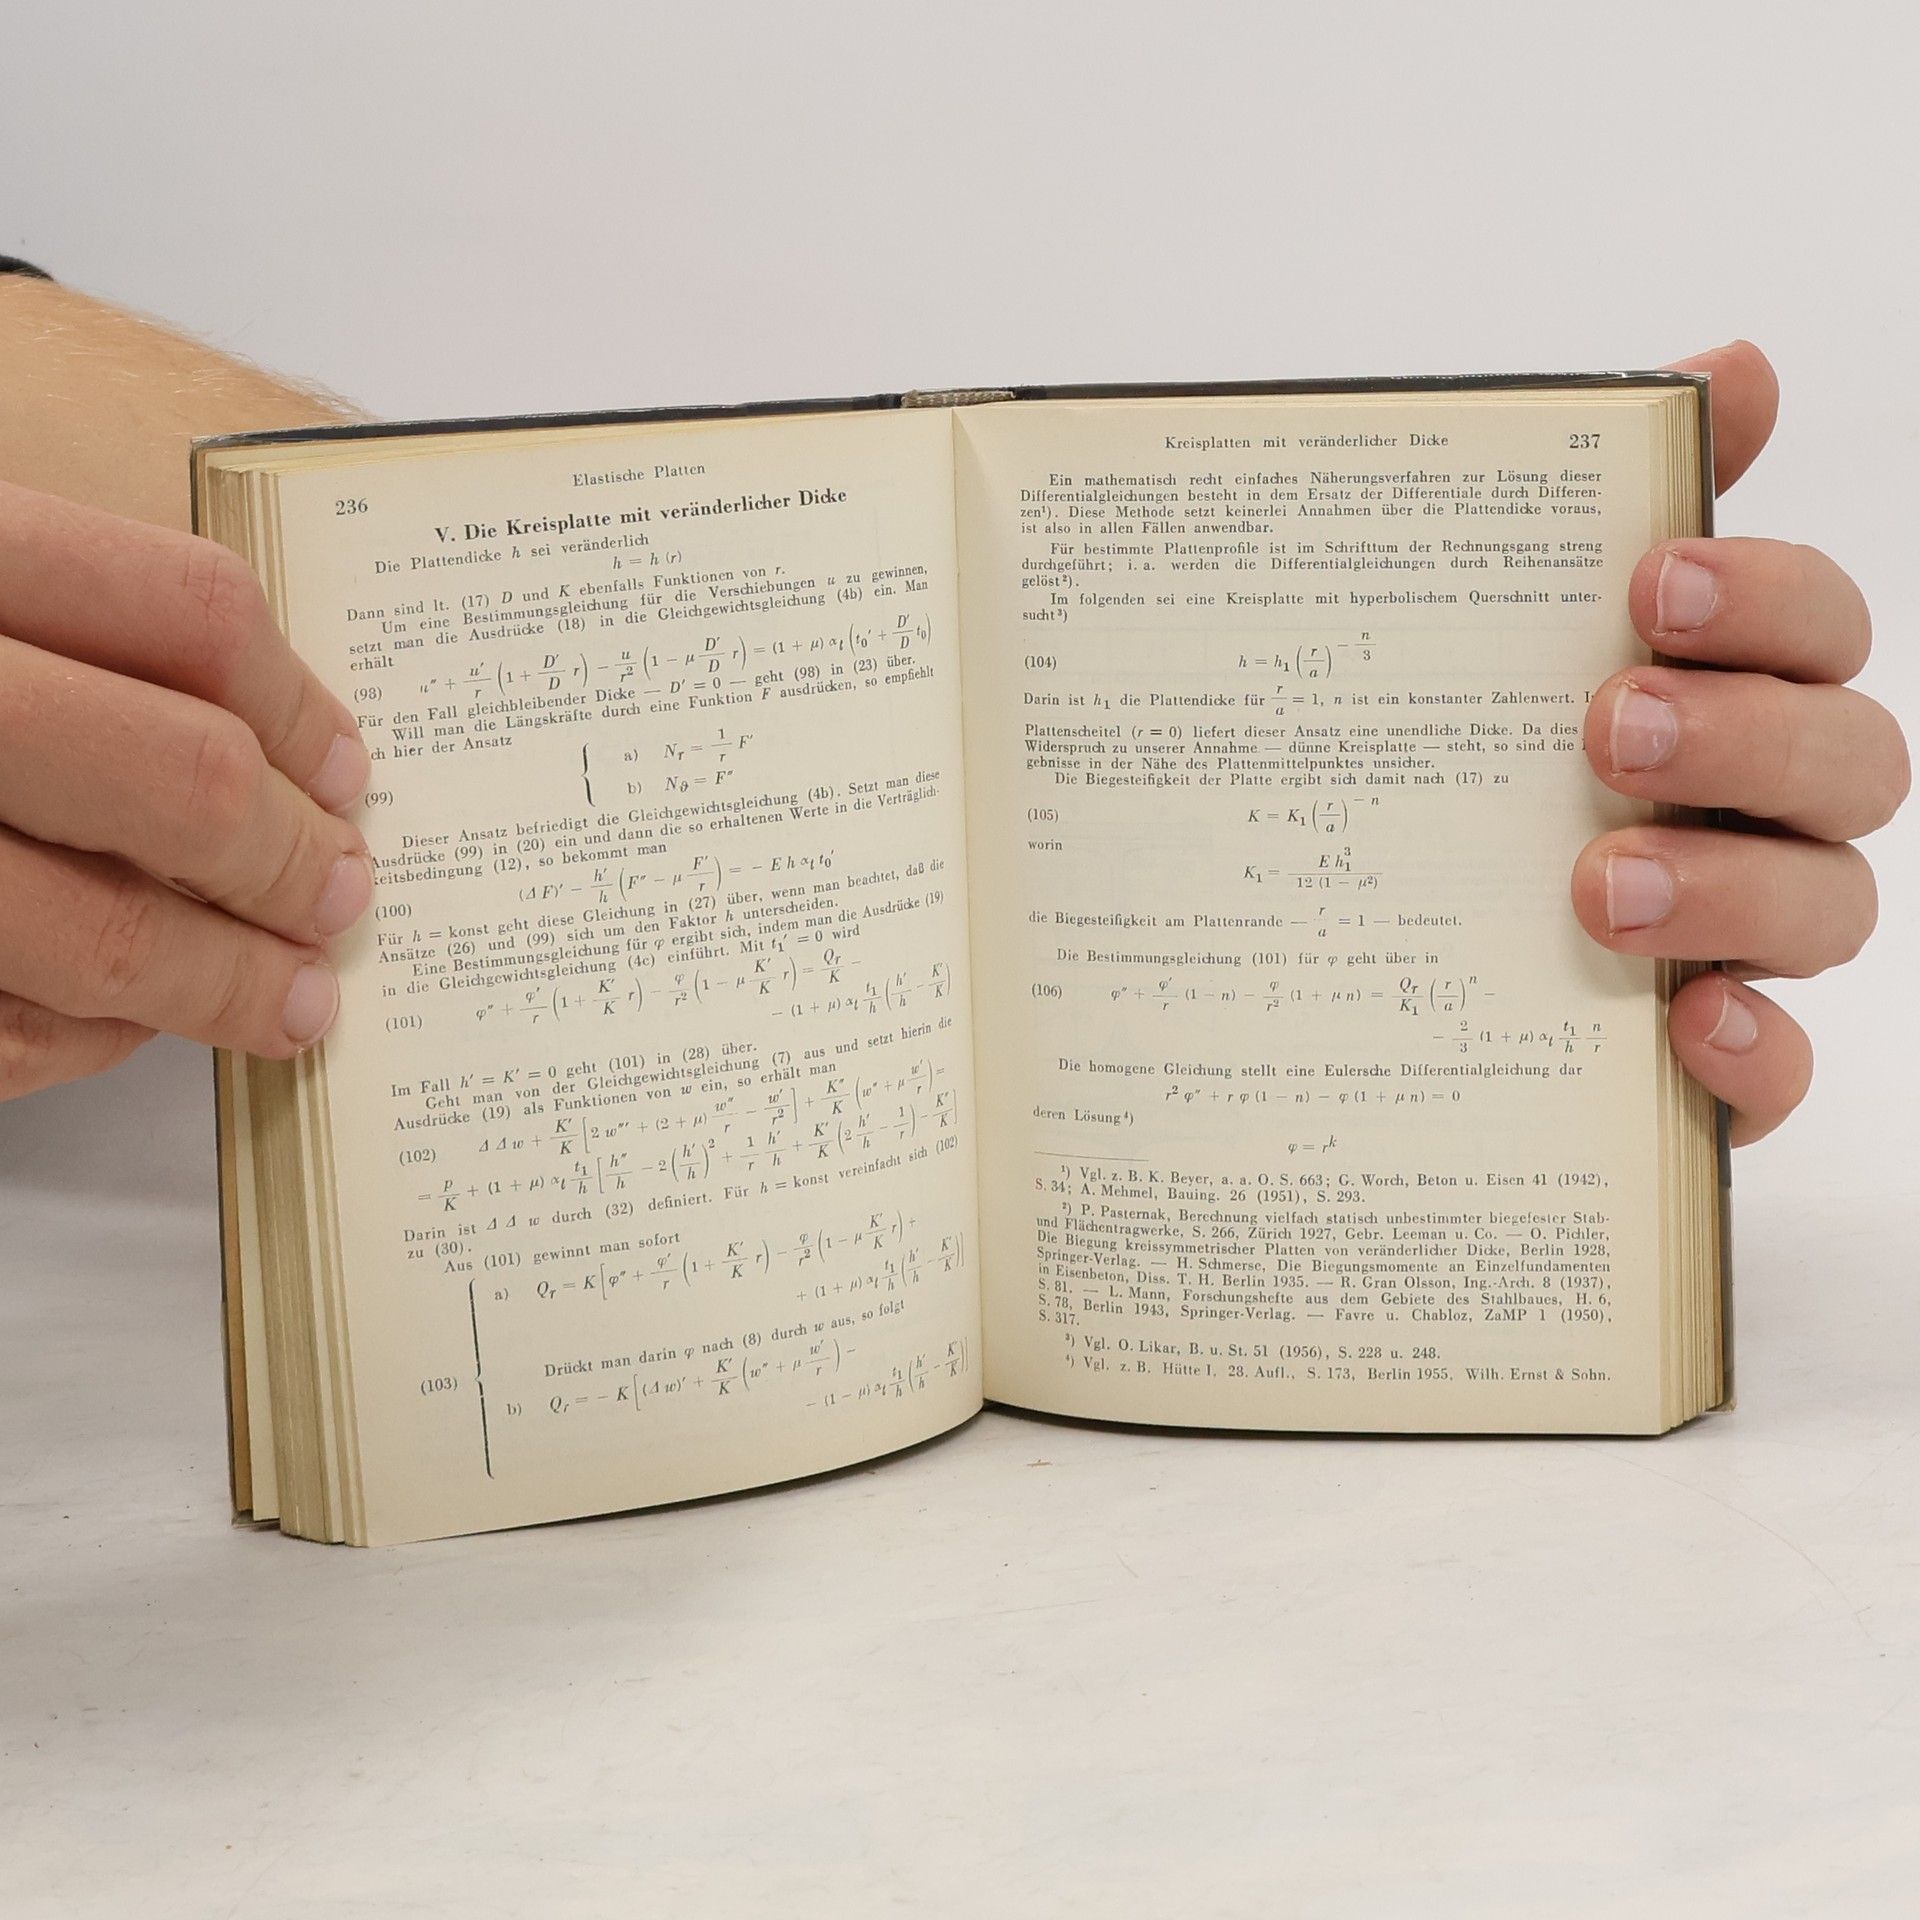 236
Elastische Platten
V. Die Kreisplatte mit veränderlicher Dicke
Die Plattendicke h sei veränderlich
h = h (r)
Dann sind lt. (17) D und K ebenfalls Funktionen von r.
Um eine Bestimmungsgleichung für die Verschiebungen u zu gewinnen,
setzt man die Ausdrücke (18) in die Gleichgewichtsgleichung (4b) ein. Man
erhält
(98) u″ + u′/r (1 + D′/D r) − u/r² (1 − μ D′/D r) = (1 + μ) α_t (t₀′ + D′/D t₀)
Für den Fall gleichbleibender Dicke — D′ = 0 — geht (98) in (23) über.
Will man die Längskräfte durch eine Funktion F ausdrücken, so empfiehlt
ch hier der Ansatz
(99) a) N_r = 1/r F′
b) N_ϑ = F″
Dieser Ansatz befriedigt die Gleichgewichtsgleichung (4b). Setzt man diese
Ausdrücke (99) in (20) ein und dann die so erhaltenen Werte in die Verträglich-
keitsbedingung (12), so bekommt man
(100) (Δ F)′ − h′/h (F″ − μ F′/r) = − E h α_t t₀′
Für h = konst geht diese Gleichung in (27) über, wenn man beachtet, daß die
Ansätze (26) und (99) sich um den Faktor h unterscheiden.
Eine Bestimmungsgleichung für φ ergibt sich, indem man die Ausdrücke (19)
in die Gleichgewichtsgleichung (4c) einführt. Mit t₁′ = 0 wird
(101) φ″ + φ′/r (1 + K′/K r) − φ/r² (1 − μ K′/K r) = Q_r/K −
− (1 + μ) α_t t₁/h (h′/h − K′/K)
Im Fall h′ = K′ = 0 geht (101) in (28) über.
Geht man von der Gleichgewichtsgleichung (7) aus und setzt hierin die
Ausdrücke (19) als Funktionen von w ein, so erhält man
(102) Δ Δ w + K′/K [2 w‴ + (2 + μ) w″/r − w′/r²] + K″/K (w″ + μ w′/r) =
= p/K + (1 + μ) α_t t₁/h [h″/h − 2 (h′/h)² + 1/r h′/h + K′/K (2 h′/h − 1/r) − K″/K]
Darin ist Δ Δ w durch (32) definiert. Für h = konst vereinfacht sich (102)
zu (30).
Aus (101) gewinnt man sofort
a) Q_r = K [φ″ + φ′/r (1 + K′/K r) − φ/r² (1 − μ K′/K r) +
+ (1 + μ) α_t t₁/h (h′/h − K′/K)]
Drückt man darin φ nach (8) durch w aus, so folgt
(103)
b) Q_r = − K [(Δ w)′ + K′/K (w″ + μ w′/r) −
− (1 − μ) α_t t₁/h (h′/h − K′/K)]
Kreisplatten mit veränderlicher Dicke
237
Ein mathematisch recht einfaches Näherungsverfahren zur Lösung dieser
Differentialgleichungen besteht in dem Ersatz der Differentiale durch Differen-
zen¹). Diese Methode setzt keinerlei Annahmen über die Plattendicke voraus,
ist also in allen Fällen anwendbar.
Für bestimmte Plattenprofile ist im Schrifttum der Rechnungsgang streng
durchgeführt; i. a. werden die Differentialgleichungen durch Reihenansätze
gelöst²).
Im folgenden sei eine Kreisplatte mit hyperbolischem Querschnitt unter-
sucht³)
(104) h = h₁ (r/a)^(− n/3)
Darin ist h₁ die Plattendicke für r/a = 1, n ist ein konstanter Zahlenwert.
Plattenscheitel (r = 0) liefert dieser Ansatz eine unendliche Dicke. Da dies
Widerspruch zu unserer Annahme — dünne Kreisplatte — steht, so sind die
gebnisse in der Nähe des Plattenmittelpunktes unsicher.
Die Biegesteifigkeit der Platte ergibt sich damit nach (17) zu
(105) K = K₁ (r/a)^(− n)
worin
K₁ = E h₁³ / 12 (1 − μ²)
die Biegesteifigkeit am Plattenrande — r/a = 1 — bedeutet.
Die Bestimmungsgleichung (101) für φ geht über in
(106) φ″ + φ′/r (1 − n) − φ/r² (1 + μ n) = Q_r/K₁ (r/a)ⁿ −
− 2/3 (1 + μ) α_t t₁/h n/r
Die homogene Gleichung stellt eine Eulersche Differentialgleichung dar
r² φ″ + r φ (1 − n) − φ (1 + μ n) = 0
deren Lösung⁴)
φ = r^k
¹) Vgl. z. B. K. Beyer, a. a. O. S. 663; G. Worch, Beton u. Eisen 41 (1942),
S. 34; A. Mehmel, Bauing. 26 (1951), S. 293.
²) P. Pasternak, Berechnung vielfach statisch unbestimmter biegefester Stab-
und Flächentragwerke, S. 266, Zürich 1927, Gebr. Leeman u. Co. — O. Pichler,
Die Biegung kreissymmetrischer Platten von veränderlicher Dicke, Berlin 1928,
Springer-Verlag. — H. Schmerse, Die Biegungsmomente an Einzelfundamenten
in Eisenbeton, Diss. T. H. Berlin 1935. — R. Gran Olsson, Ing.-Arch. 8 (1937),
S. 81. — L. Mann, Forschungshefte aus dem Gebiete des Stahlbaues, H. 6,
S. 78, Berlin 1943, Springer-Verlag. — Favre u. Chabloz, ZaMP 1 (1950),
S. 317.
³) Vgl. O. Likar, B. u. St. 51 (1956), S. 228 u. 248.
⁴) Vgl. z. B. Hütte I, 28. Aufl., S. 173, Berlin 1955, Wilh. Ernst & Sohn.